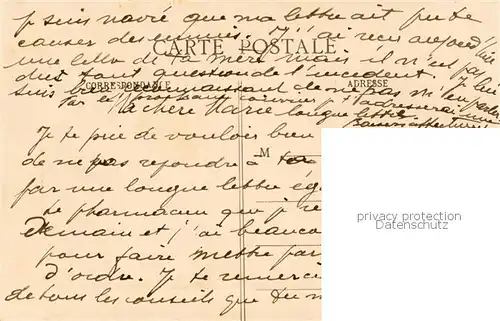 je suis navré que ma lettre ait pu te
causer des ennuis. J'ai reçu aujourd'hui
CARTE POSTALE
une lettre de ta mère mais il n'est pas
du tout question de l'incident. Je lui
CORRESPONDANCE
ADRESSE
suis reconnaissant de ne pas m'en parler
par le prochain courrier je t'adresserai une
Ma chère Marie longue lettre
Je te prie de vouloir bien
de ne pas répondre à
M
par une longue lettre
le pharmacien que je
demain et j'ai beaucoup
pour faire mettre
d'ordre. Je te remercie
de tous les conseils que tu
privacy protection
Datenschutz